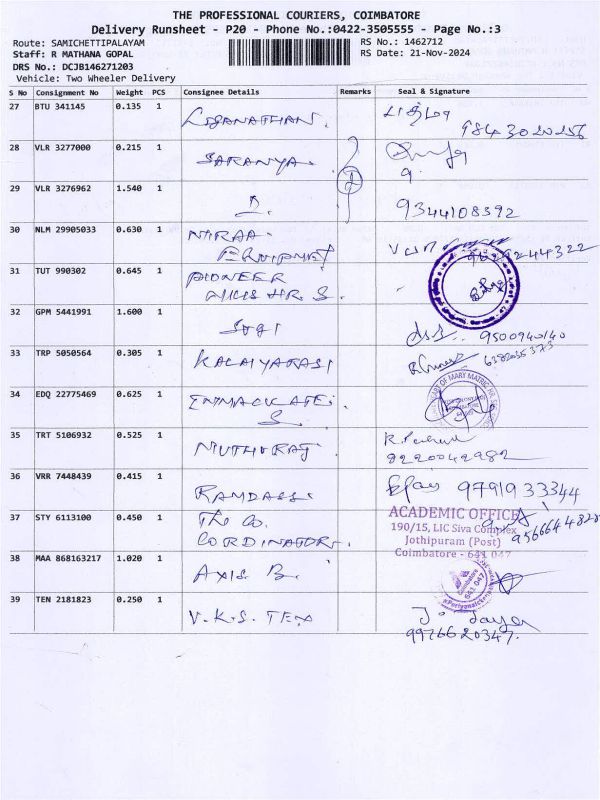 THE PROFESSIONAL COURIERS, COIMBATORE
Delivery Runsheet - P20 - Phone No.:0422-3505555 - Page No.:3
Route: SAMICHETTIPALAYAM RS No.: 1462712
Staff: R MATHANA GOPAL RS Date: 21-Nov-2024
DRS No.: DCJB146271203
Vehicle: Two Wheeler Delivery
S No Consignment No Weight PCS Consignee Details Remarks Seal & Signature
27 BTU 341145 0.135 1
LOGANATHAN.
28 VLR 3277000 0.215 1
SARANYA.
29 VLR 3276962 1.540 1
9344108392
30 NLM 29905033 0.630 1
31 TUT 990302 0.645 1 PIONEER
32 GPM 5441991 1.600 1
9500940140
33 TRP 5050564 0.305 1 KALAIYARASI
6382035373
34 EDQ 22775469 0.625 1
35 TRT 5106932 0.525 1 MUTHURAJ
8220042982
36 VRR 7448439 0.415 1 RAMDASS.
9791933344
37 STY 6113100 0.450 1 The Co. ACADEMIC OFFICE
CORDINATOR. 190/15, LIC Siva Complex
9566644828
Jothipuram (Post)
Coimbatore - 641 047
38 MAA 868163217 1.020 1 AXIS B.
39 TEN 2181823 0.250 1 V.K.S. TEX
9976620347.